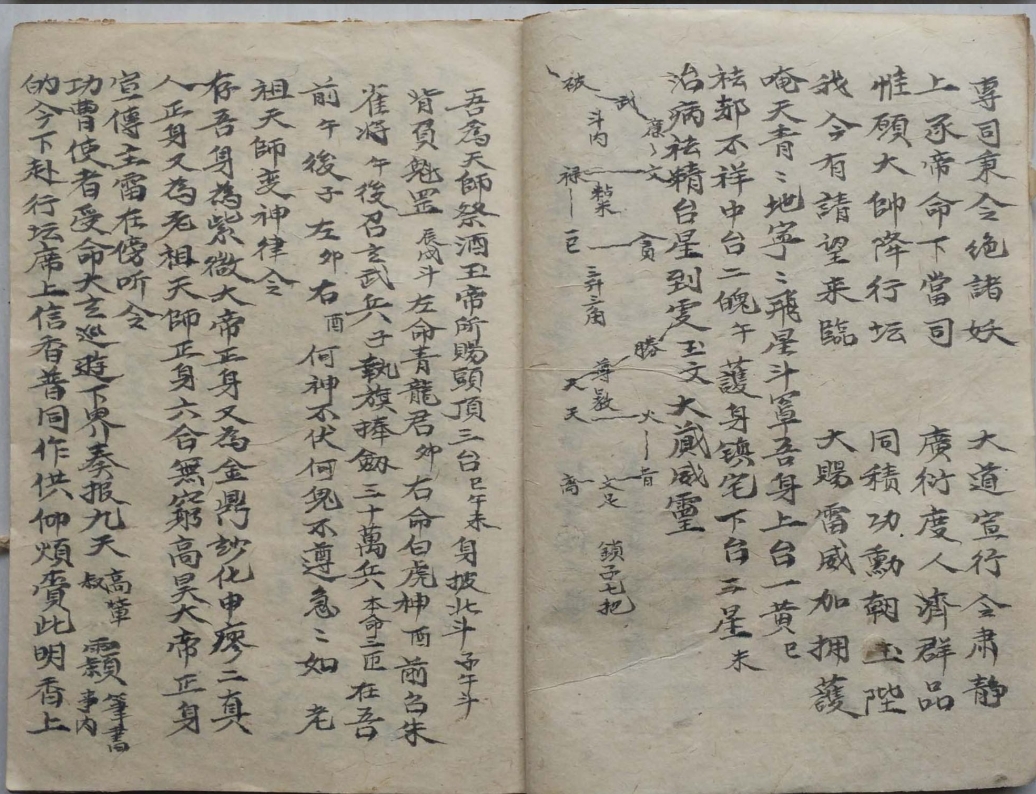 專司秉令絕諸妖 大道宣行令肅静
上承帝命下當司 廣衍度人濟群品
惟願大帥降行坛 同積功勳朝玉陛
我今有請望来臨 大賜雷威加拥護
唵天青〻地寧〻飛星斗罩吾身上台一黄巳
祛都不祥中台二魄午 護身镇宅下台三星未
治病祛精台星到處玉文大藏威灵
破 武 廉 文
斗内
禄 貪
巳
三台
勝
火
天
文足
鎖子七把
吾為天師祭酒玉帝所赐頭頂三台巳午未身披北斗子午斗
背負魁罡辰戌斗左命青龍君卯右命白虎神酉前召朱
雀将午後召玄武兵子執旗捧劔三十萬兵本命三匝在吾
前午後子左卯右酉何神不伏何鬼不遵急〻如 老
祖天師变神律令
存吾身為紫微大帝正身又為金鼎妙化申廖二真
人正身又為老祖天師正身六合無窮高昊大帝正身
宣傳主雷在傍听令
功曹使者受命大玄巡遊下界奏报九天 高 筆書 事内
的今下赴行坛席上信香普同作供仰煩賫此明香上